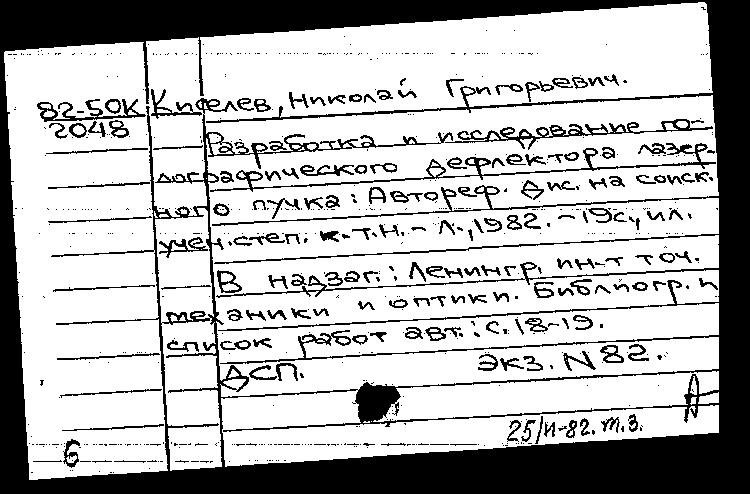 82-50К Киселев, Николай Григорьевич.
2048
Разработка и исследование го-
лографического дефлектора лазер-
ного пучка: Автореф. дис. на соиск.
учен. степ. к.т.н. - Л., 1982. - 19с., ил.
В надзаг.: Ленингр. ин-т точ.
механики и оптики. Библиогр. и
список работ авт.: с. 18-19.
ДСП. экз. N 82.
25/II-82. т.з.
6